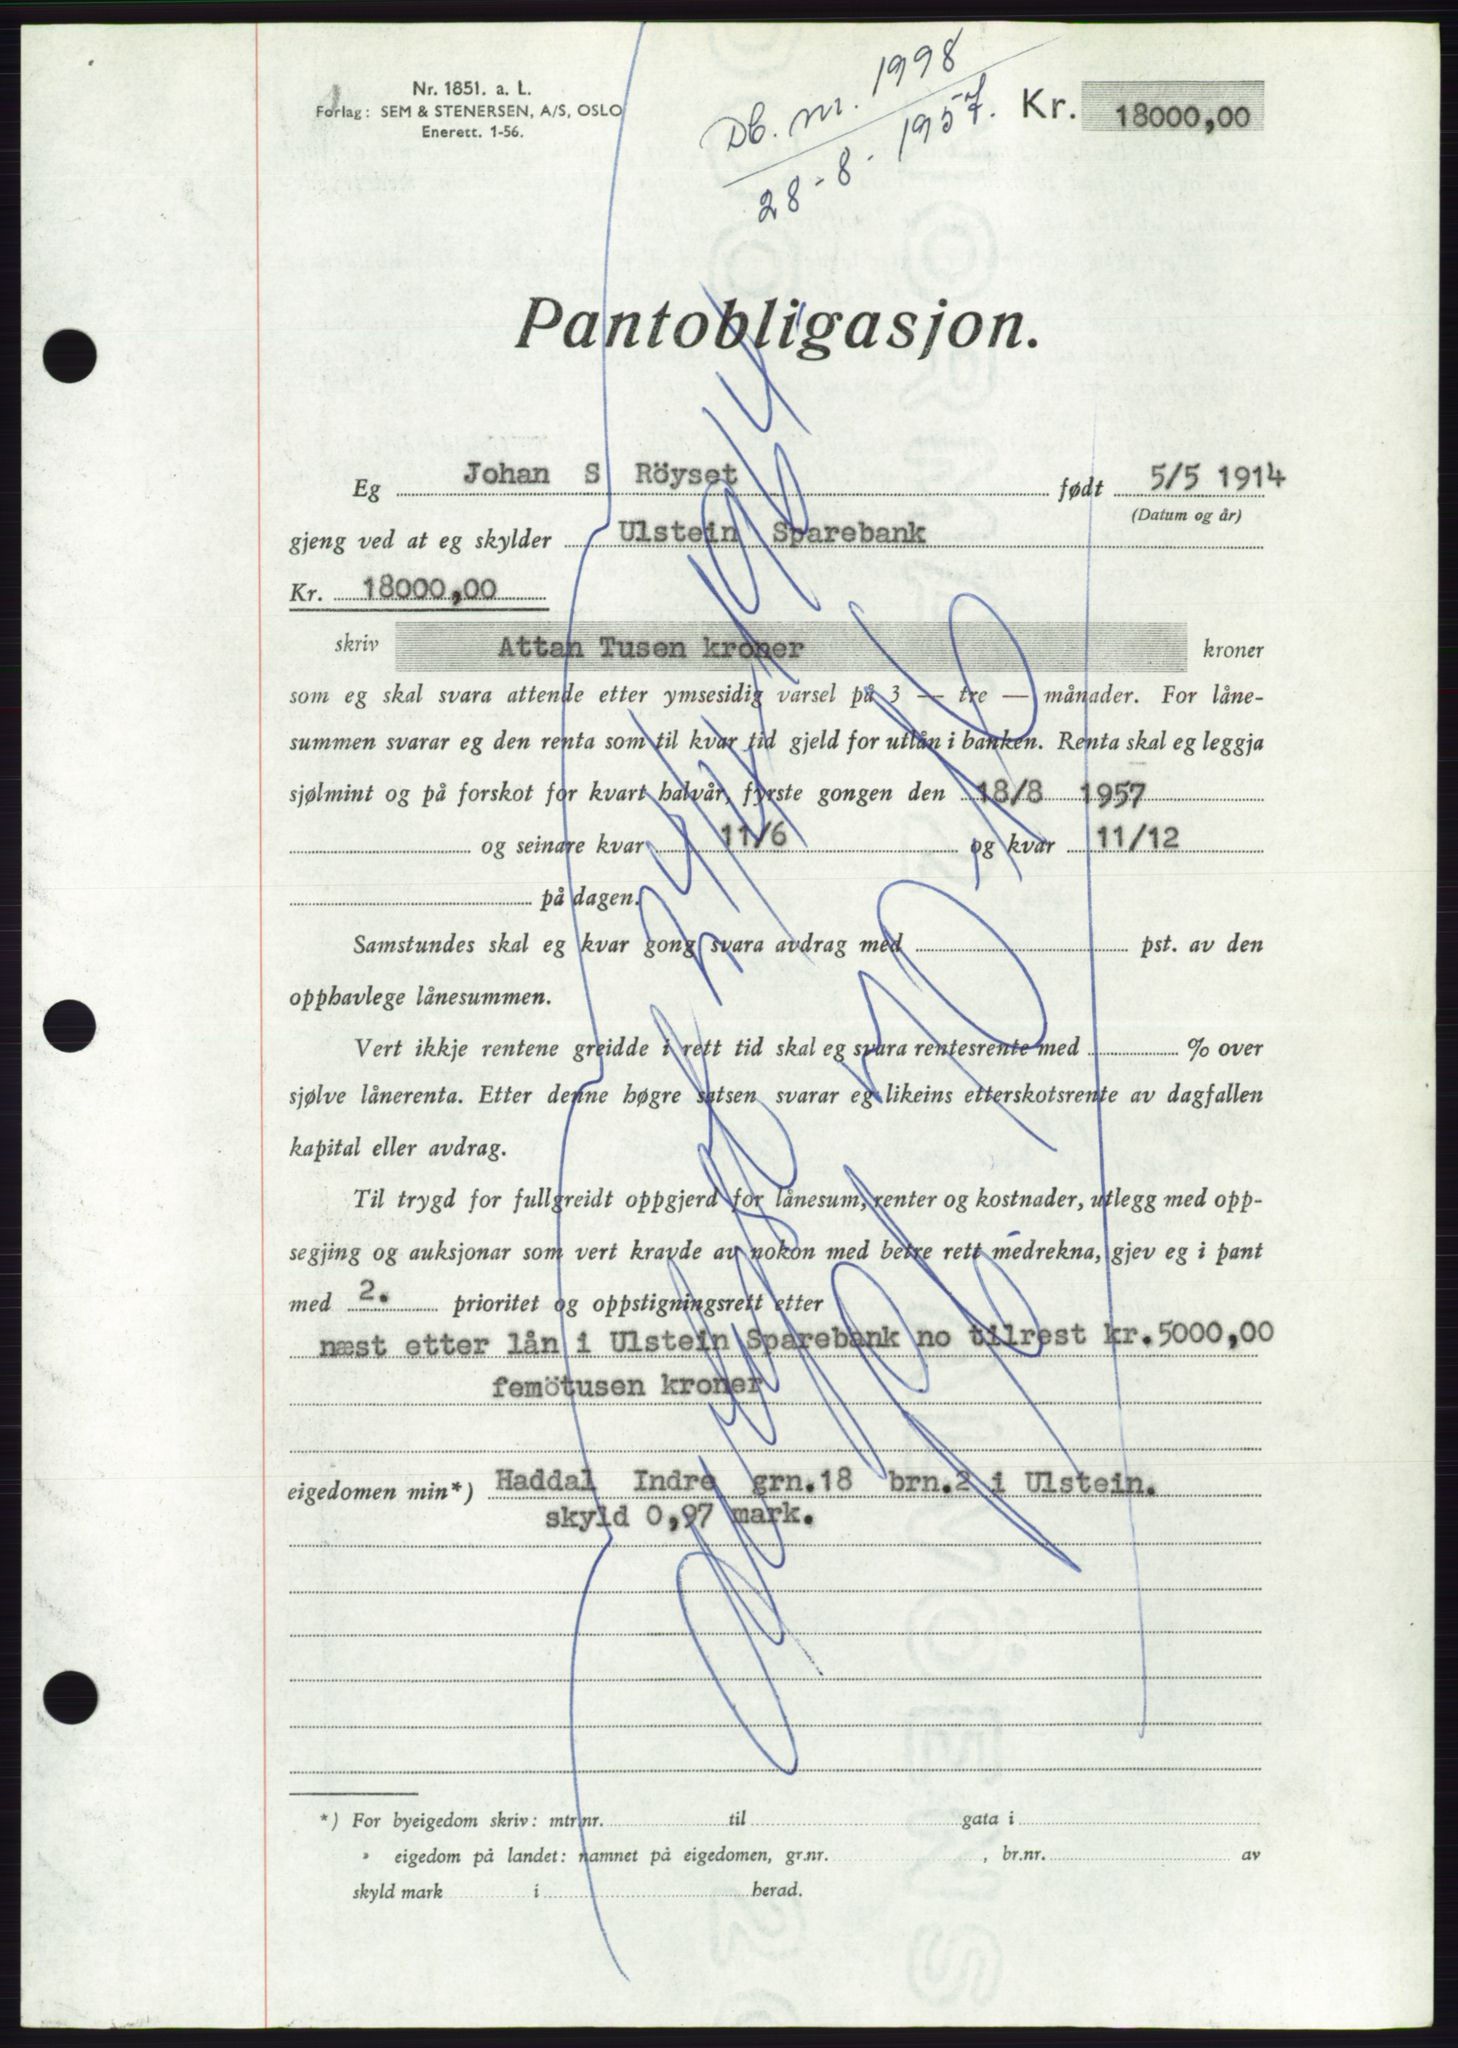 Nr. 1851. a. L.
Forlag: SEM & STENERSEN, A/S, OSLO
Enerett. 1-56.
Db. nr. 1998
28-8-1957.
Kr. 18000,00
Pantobligasjon.
Eg Johan S Röyset født 5/5 1914
(Datum og år)
gjeng ved at eg skylder Ulstein Sparebank
Kr. 18000,00
skriv Attan Tusen kroner kroner
som eg skal svara attende etter ymsesidig varsel på 3 — tre — månader. For låne-
summen svarar eg den renta som til kvar tid gjeld for utlån i banken. Renta skal eg leggja
sjølmint og på forskot for kvart halvår, fyrste gongen den 18/8 1957
og seinare kvar 11/6 og kvar 11/12
på dagen.
Samstundes skal eg kvar gong svara avdrag med pst. av den
opphavlege lånesummen.
Vert ikkje rentene greidde i rett tid skal eg svara rentesrente med % over
sjølve lånerenta. Etter denne høgre satsen svarar eg likeins etterskotsrente av dagfallen
kapital eller avdrag.
Til trygd for fullgreidt oppgjerd for lånesum, renter og kostnader, utlegg med opp-
segjing og auksjonar som vert kravde av nokon med betre rett medrekna, gjev eg i pant
med 2. prioritet og oppstigningsrett etter
næst etter lån i Ulstein Sparebank no tilrest kr.5000,00
femötusen kroner
eigedomen min*) Haddal Indre grn.18 brn.2 i Ulstein.
skyld 0,97 mark.
*) For byeigedom skriv: mtr.nr. til gata i
» eigedom på landet: namnet på eigedomen, gr.nr. , br.nr. av
skyld mark i herad.